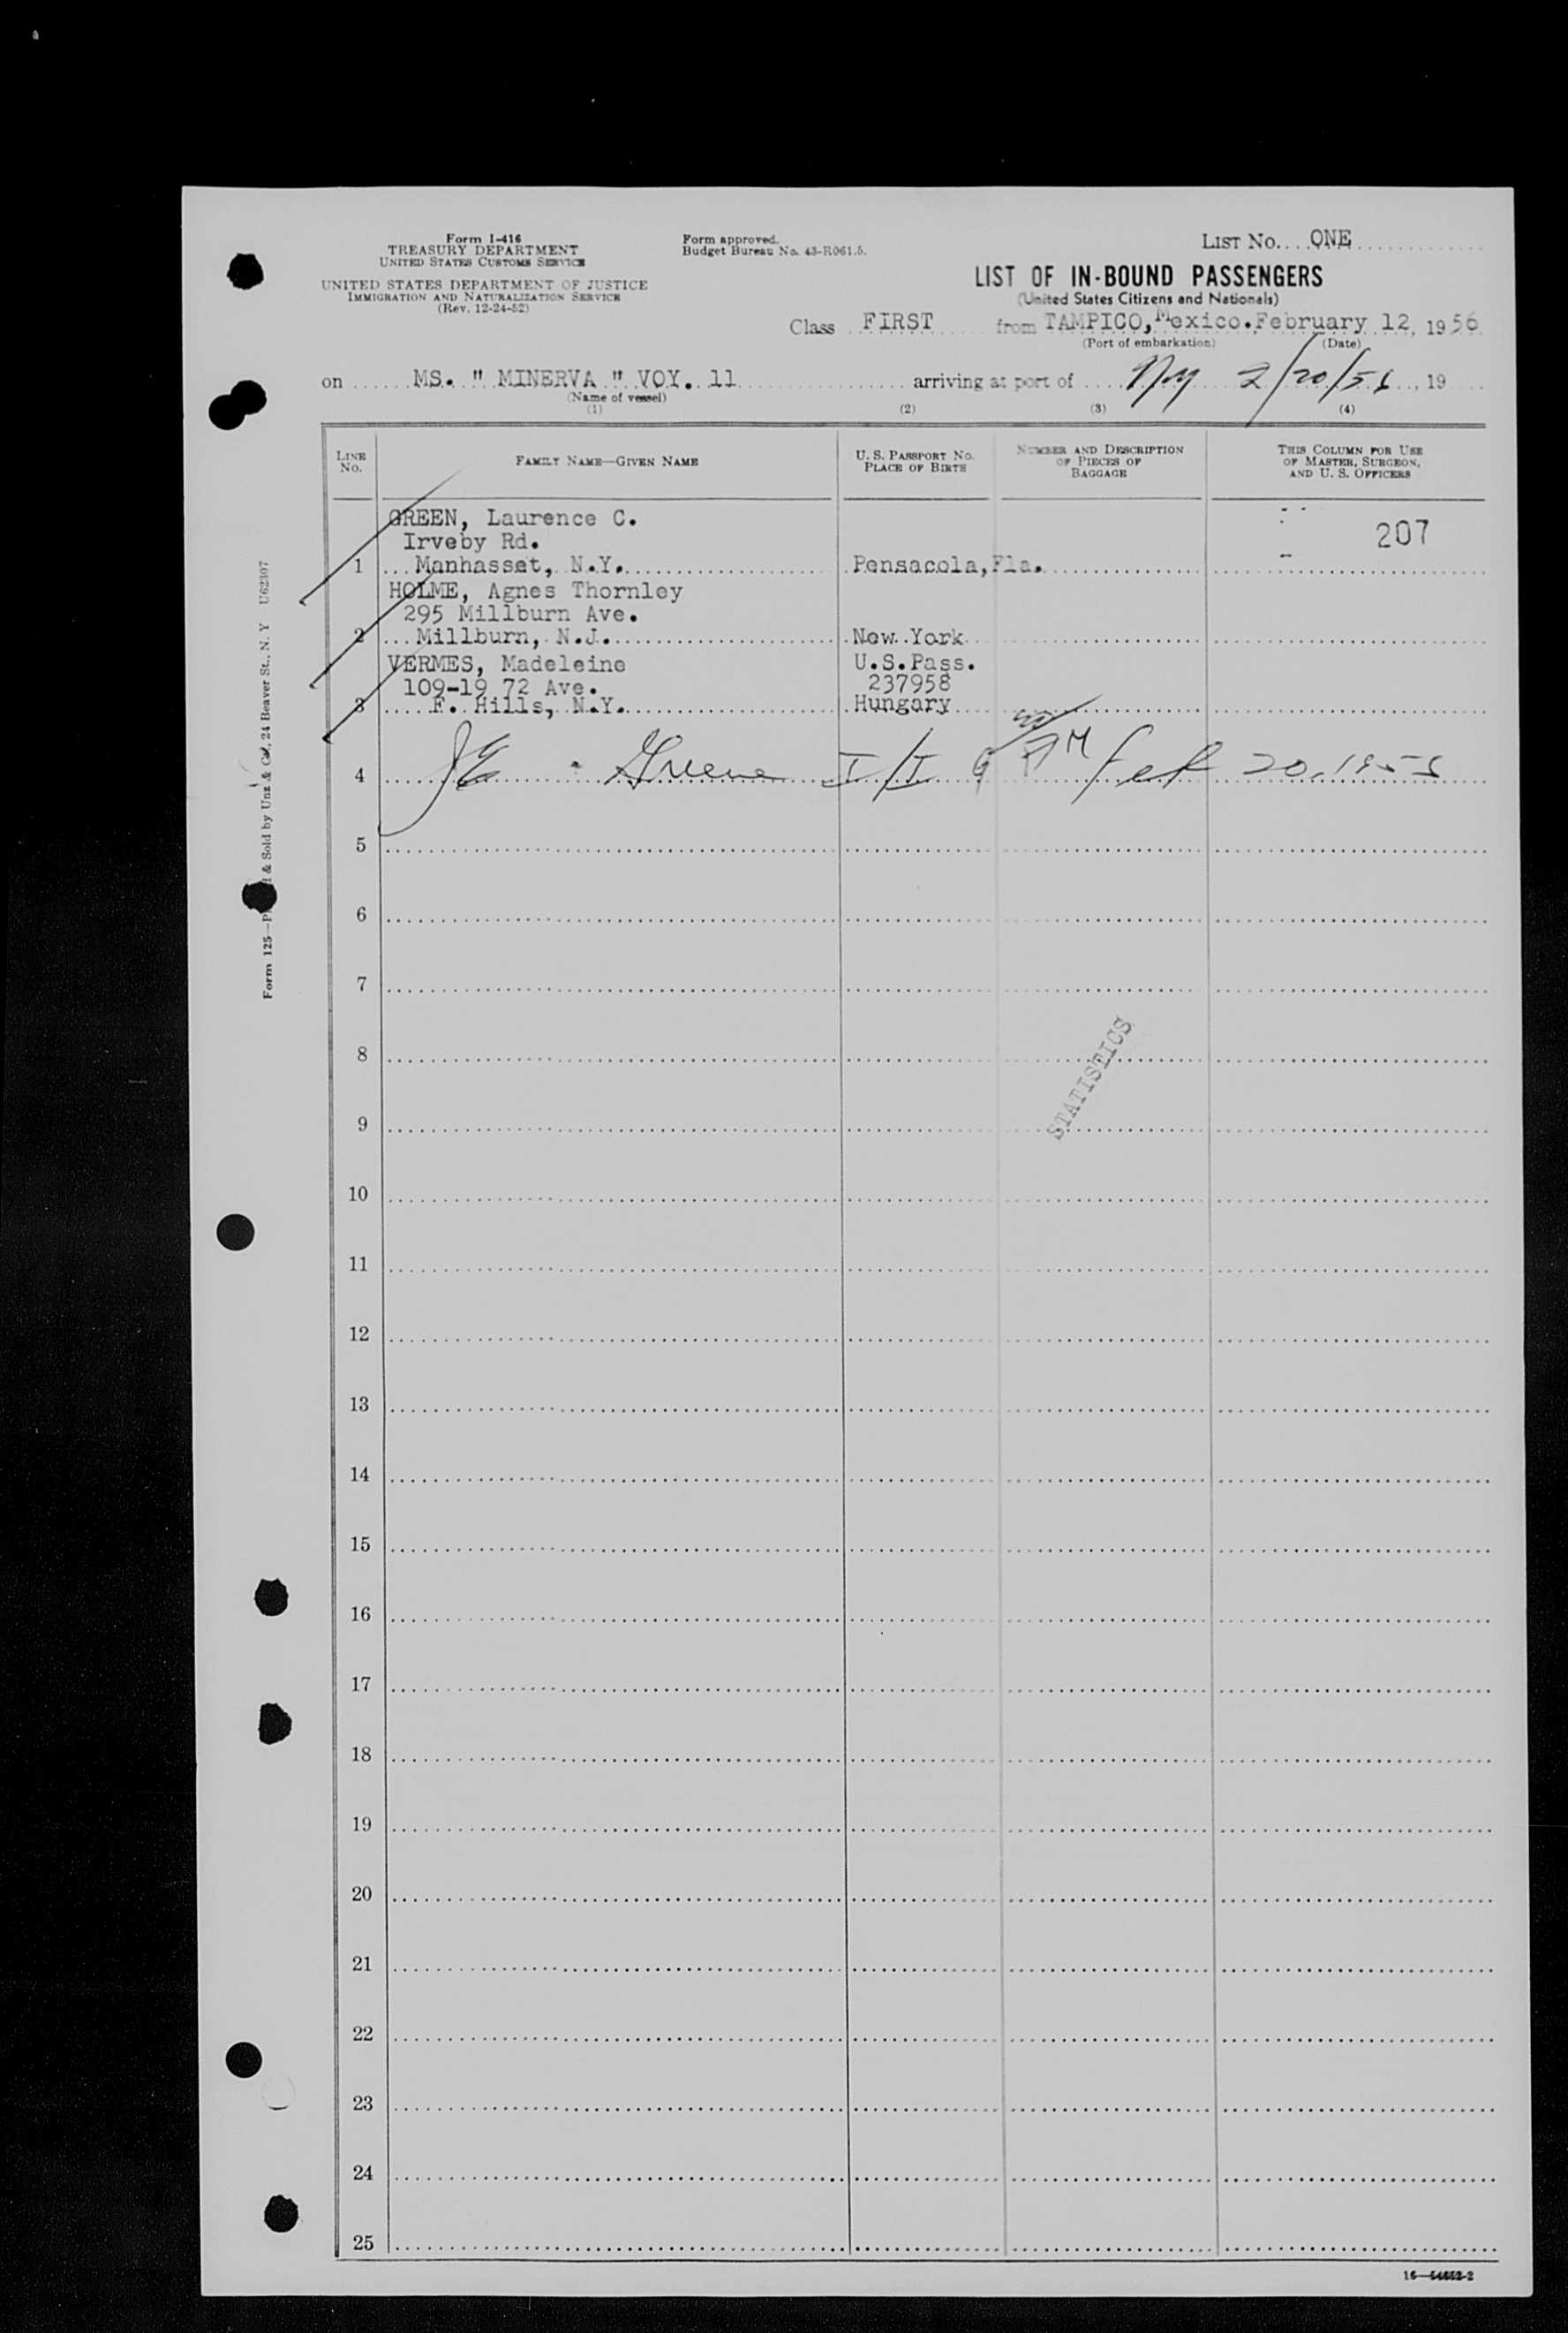 Form I-416
TREASURY DEPARTMENT
UNITED STATES CUSTOMS SERVICE
UNITED STATES DEPARTMENT OF JUSTICE
IMMIGRATION AND NATURALIZATION SERVICE
(Rev. 12-24-52)
Form approved.
Budget Bureau No. 43-R061.5.
LIST No. ONE
LIST OF IN-BOUND PASSENGERS
(United States Citizens and Nationals)
Class FIRST from TAMPICO, Mexico. February 12, 1956
(Port of embarkation) (Date)
on MS. " MINERVA " VOY. 11 arriving at port of NY 2/20/56, 19
(Name of vessel)
(1) (2) (3) (4)
LINE No.
FAMILY NAME—GIVEN NAME
U. S. PASSPORT No.
PLACE OF BIRTH
NUMBER AND DESCRIPTION
OF PIECES OF
BAGGAGE
THIS COLUMN FOR USE
OF MASTER, SURGEON,
AND U. S. OFFICERS
GREEN, Laurence C.
207
Irveby Rd.
1 Manhasset, N.Y. Pensacola, Fla.
HOLME, Agnes Thornley
295 Millburn Ave.
2 Millburn, N.J. New York
VERMES, Madeleine U.S.Pass.
109-19 72 Ave. 237958
3 F. Hills, N.Y. Hungary
4 Greene I/I
5
6
7
8
STATISTICS
9
10
11
12
13
14
15
16
17
18
19
20
21
22
23
24
25
Form 125— & Sold by Unz & Co., 24 Beaver St., N. Y U62307